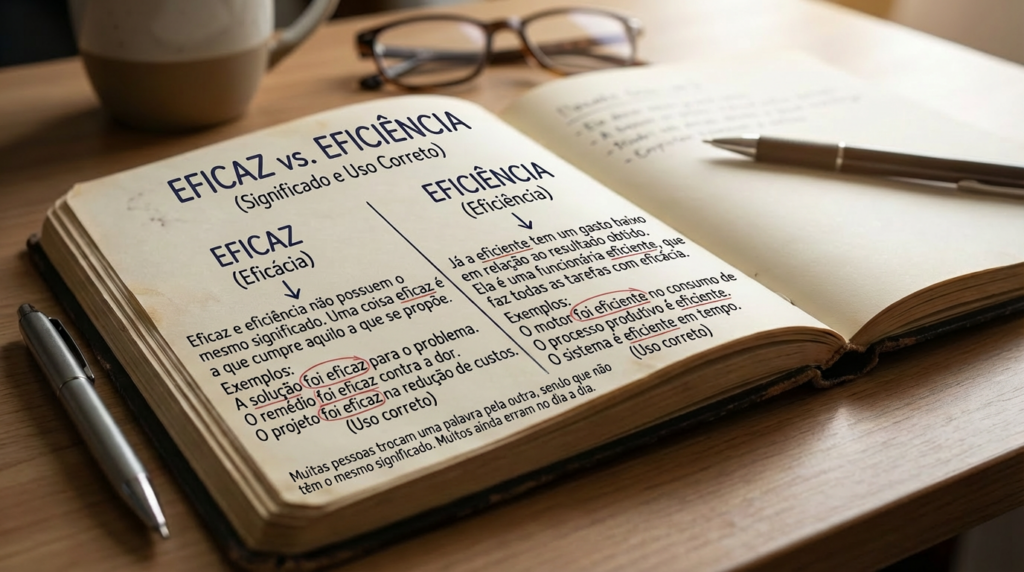 EFICAZ vs. EFICIÊNCIA
(Significado e Uso Correto)
EFICAZ
(Eficácia)
Eficaz e eficiência não possuem o
mesmo significado. Uma coisa eficaz é
a que cumpre aquilo a que se propõe.
Exemplos:
A solução foi eficaz para o problema.
O remédio foi eficaz contra a dor.
O projeto foi eficaz na redução de custos.
(Uso correto)
EFICIÊNCIA
(Eficiência)
Já a eficiente tem um gasto baixo
em relação ao resultado obtido.
Ela é uma funcionária eficiente, que
faz todas as tarefas com eficácia.
Exemplos:
O motor foi eficiente no consumo de
O processo produtivo é eficiente.
O sistema é eficiente em tempo.
(Uso correto)
Muitas pessoas trocam uma palavra pela outra, sendo que não
têm o mesmo significado. Muitos ainda erram no dia a dia.